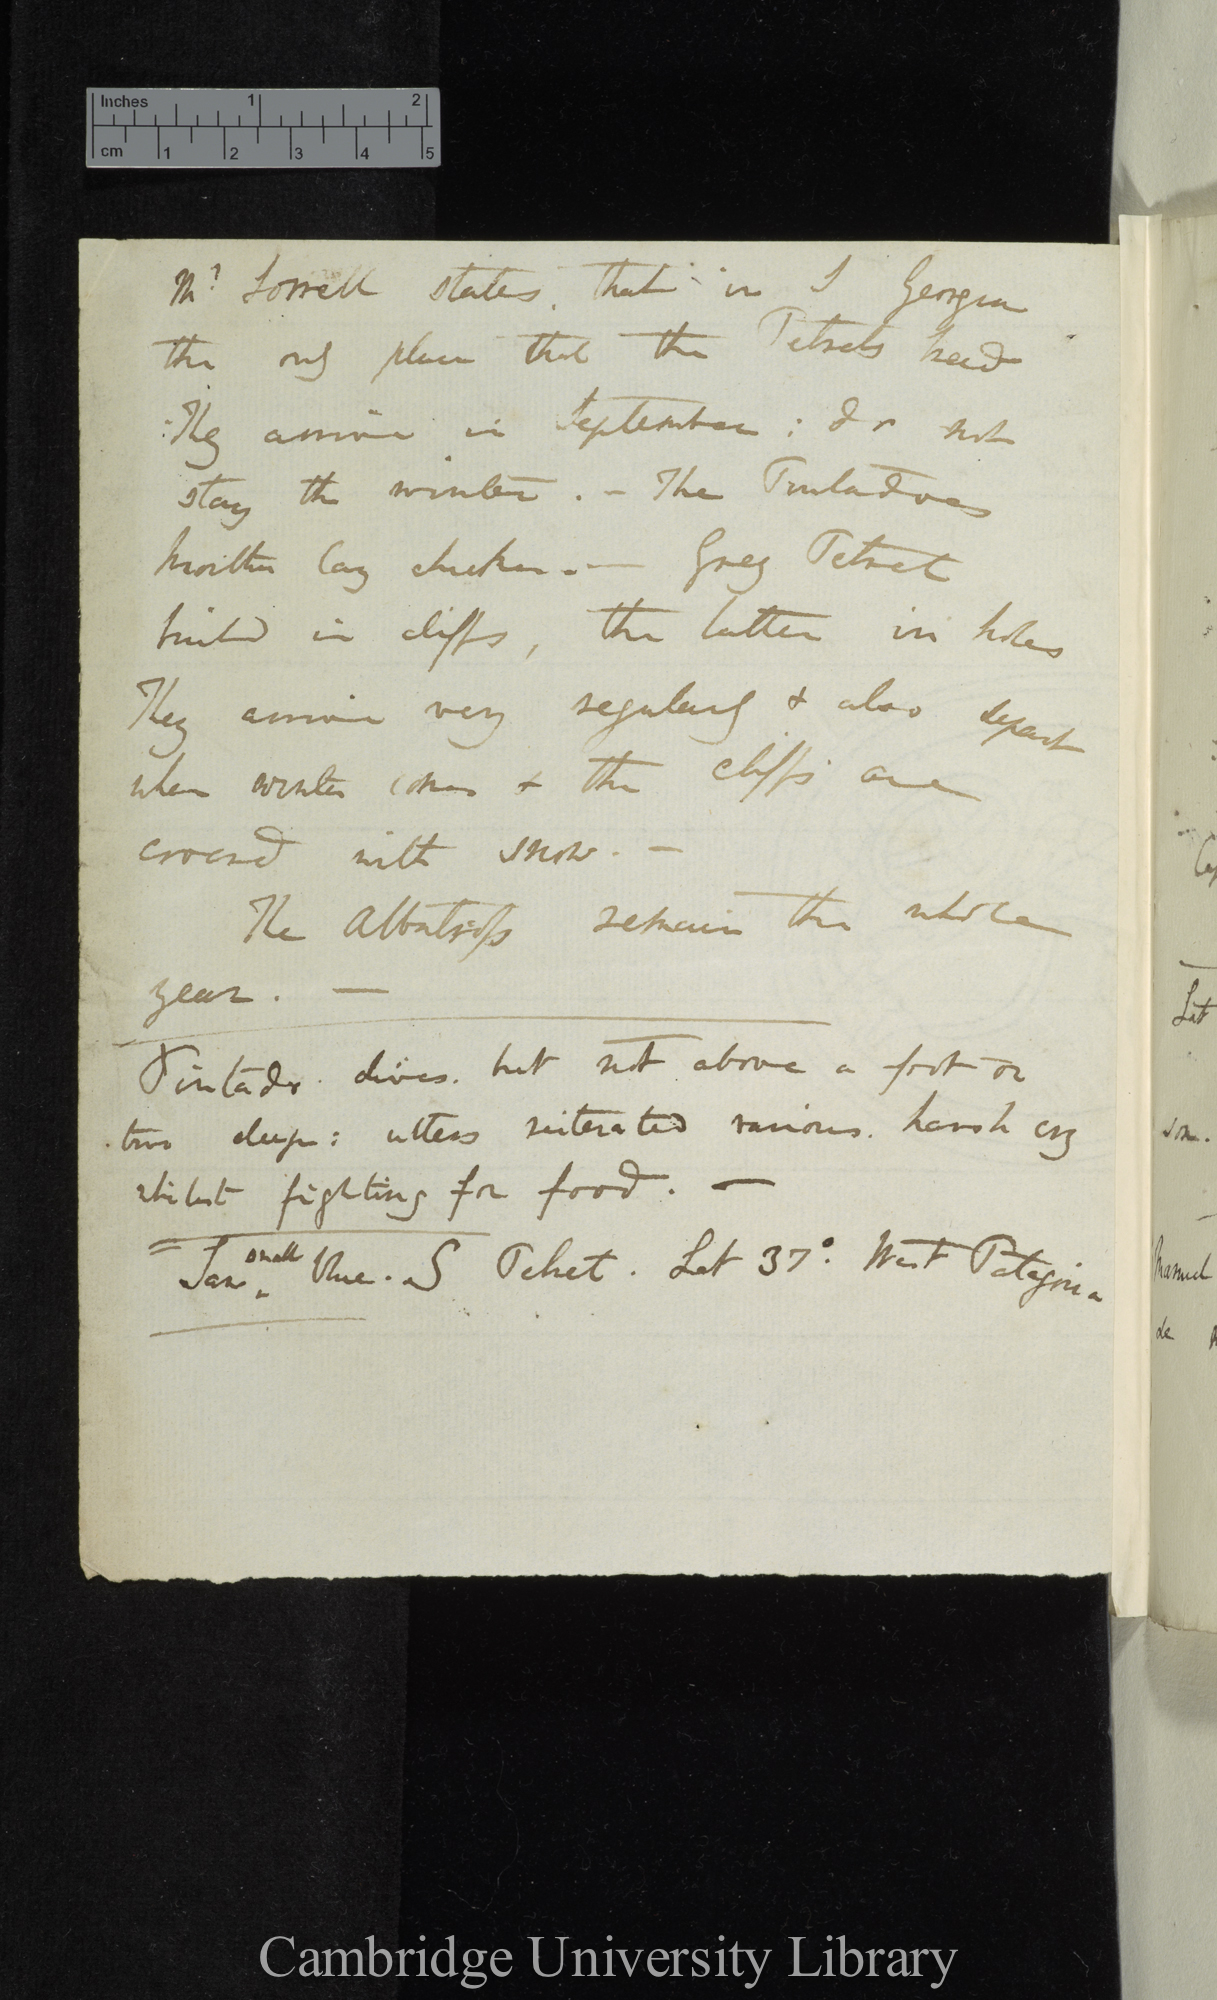 Inches 1 2
cm 1 2 3 4 5
Mr Sorrell states that in S Georgia
the only place that the Petrels breed
They arrive in September: do not
stay the winter. — The Pintadoes
Mother Cary chicken. — Grey Petrel
build in cliffs, the latter in holes
They arrive very regularly & also depart
when winter comes & the cliffs are
covered with snow. —
The Albatross remain the whole
year. —
Pintado dives but not above a foot or
two deep: utters reiterated various harsh cry
whilst fighting for food. —
Saw small blue. S Petrel. Lat 37°. West Patagonia
Lat
son.
Manuel
de
Cambridge University Library